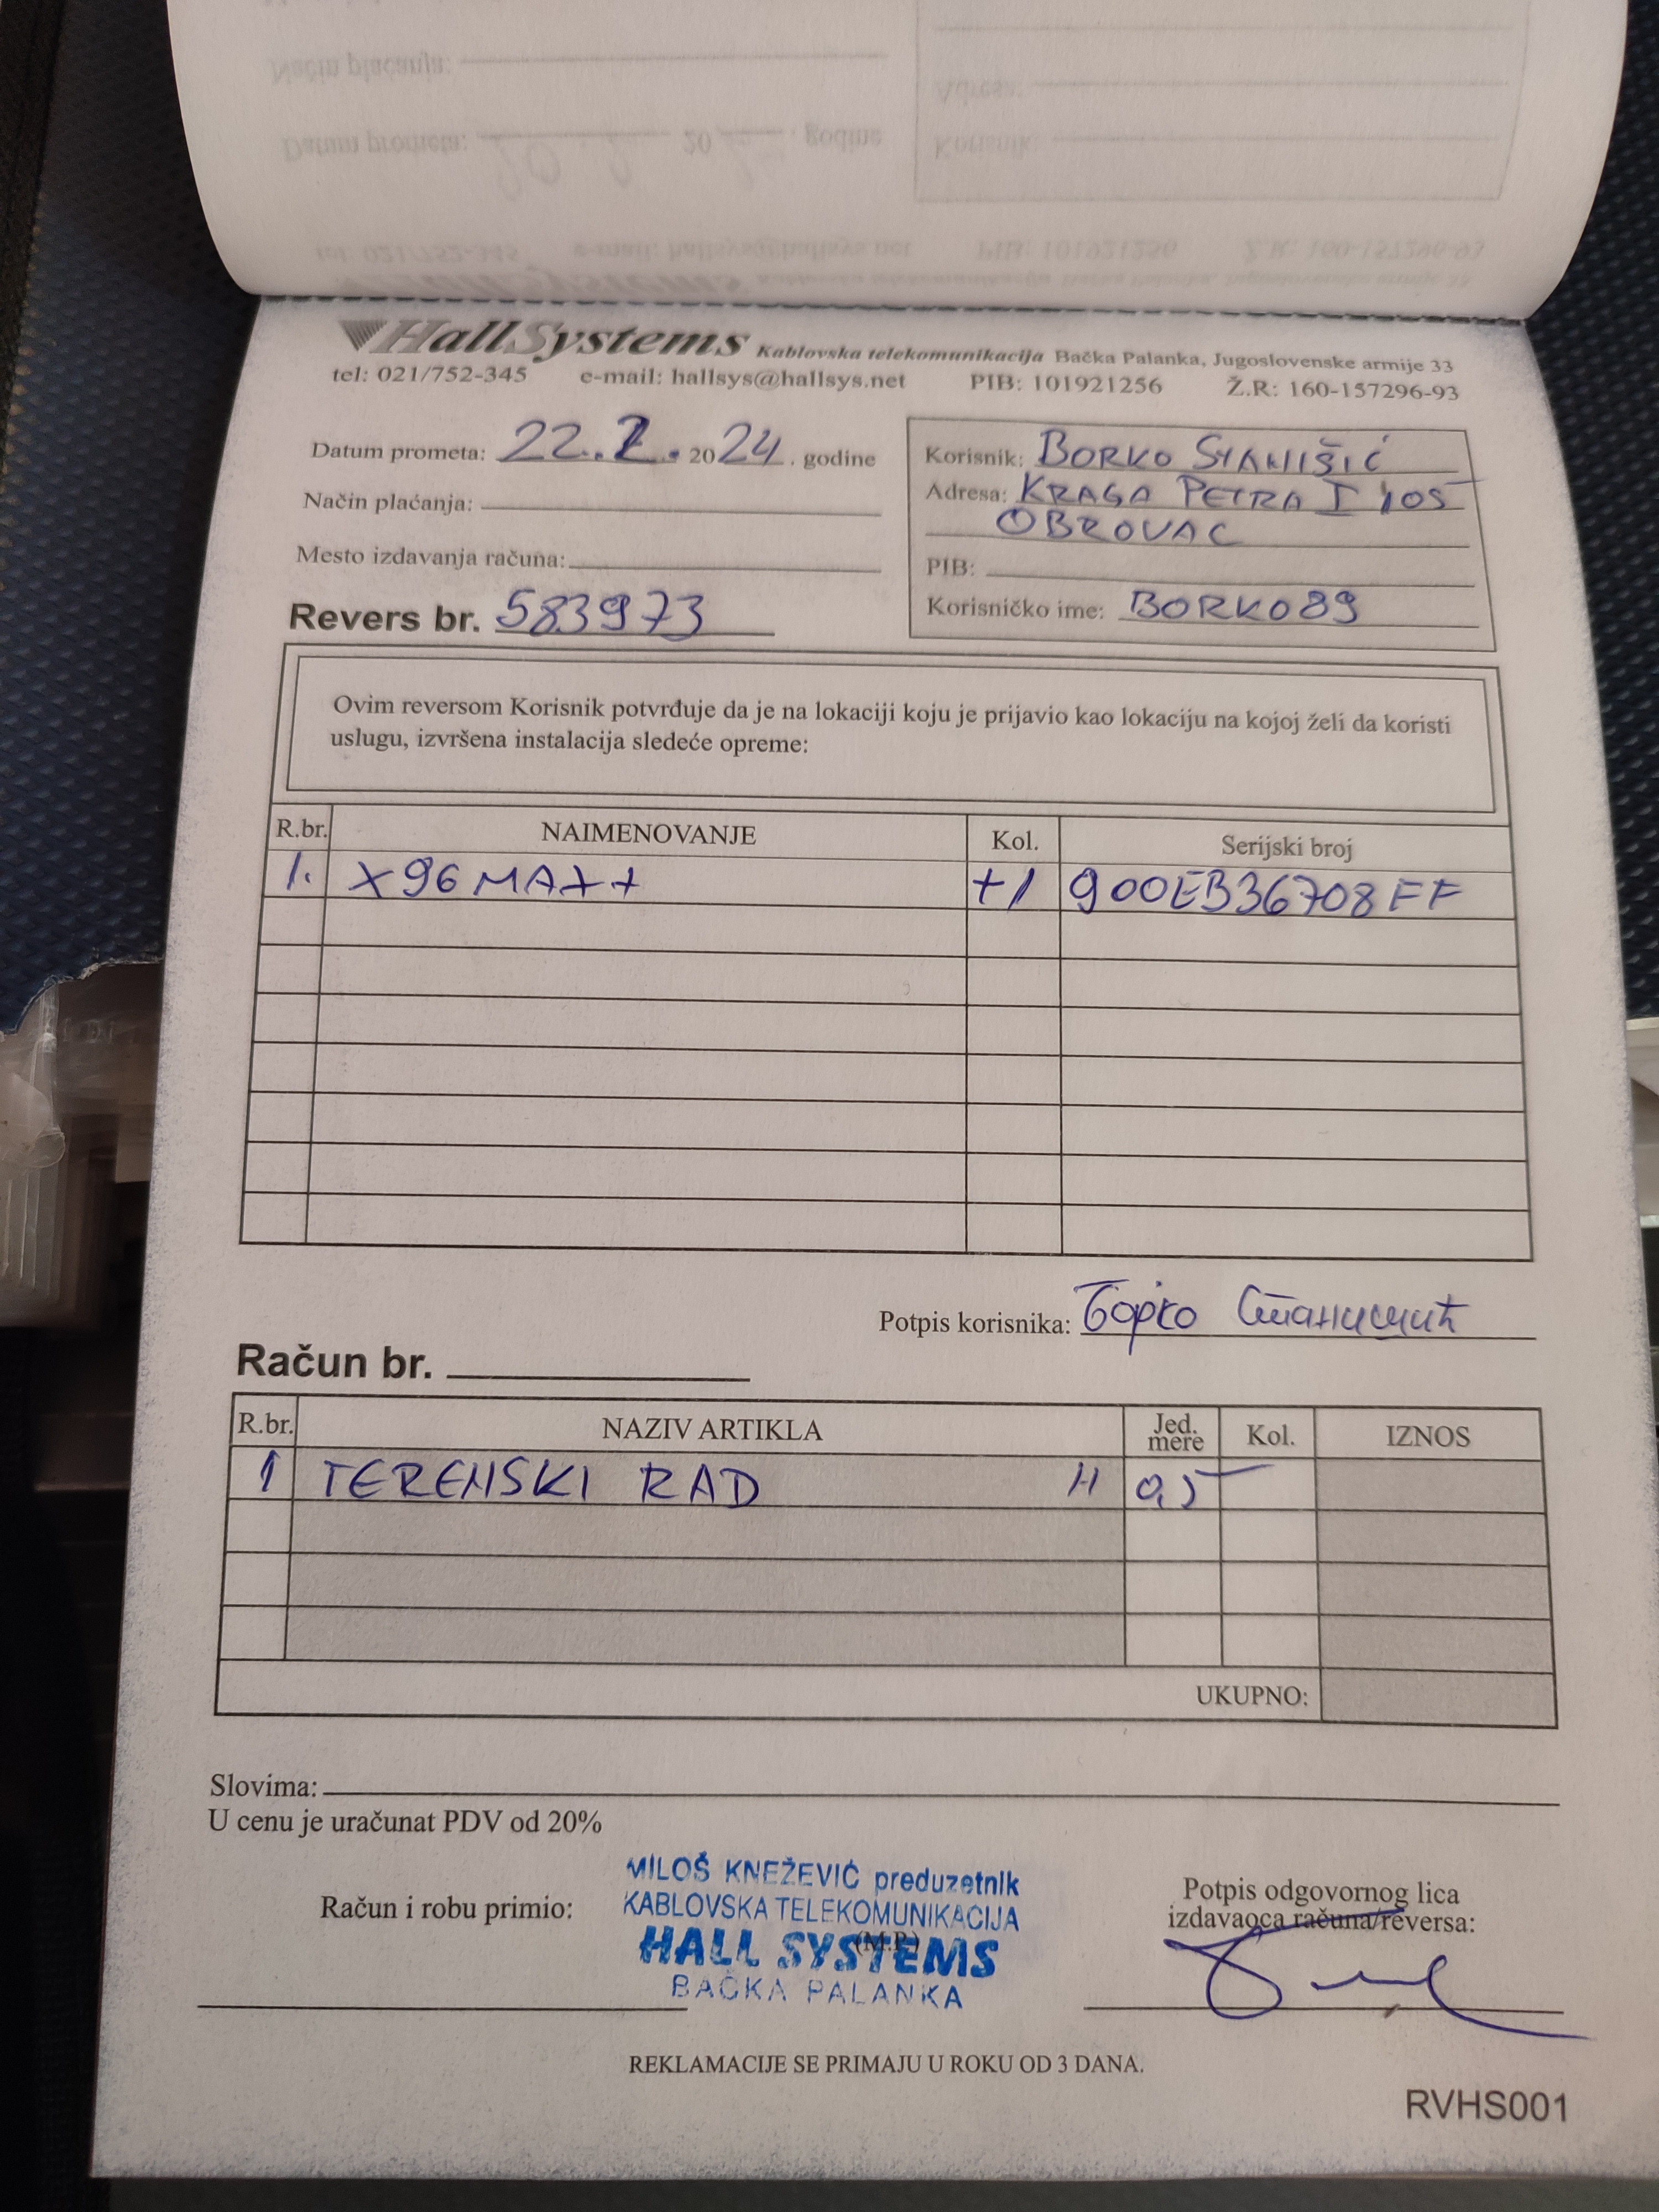 HallSystems Kablovska telekomunikacija Bačka Palanka, Jugoslovenske armije 33
tel: 021/752-345 e-mail: hallsys@hallsys.net PIB: 101921256 Ž.R: 160-157296-93
Datum prometa: 22.2. 2024. godine
Način plaćanja:
Mesto izdavanja računa:
Revers br. 583973
Korisnik: BORKO STANIŠIĆ
Adresa: KRAGA PETRA I 105
OBROVAC
PIB:
Korisničko ime: BORKO89
Ovim reversom Korisnik potvrđuje da je na lokaciji koju je prijavio kao lokaciju na kojoj želi da koristi
uslugu, izvršena instalacija sledeće opreme:
R.br. NAIMENOVANJE Kol. Serijski broj
1. X96 MAX+ +1 900EB36708FF
Potpis korisnika: Борко Станишић
Račun br.
R.br. NAZIV ARTIKLA Jed. mere Kol. IZNOS
1 TERENSKI RAD H 0,5
UKUPNO:
Slovima:
U cenu je uračunat PDV od 20%
Račun i robu primio:
MILOŠ KNEŽEVIĆ preduzetnik
KABLOVSKA TELEKOMUNIKACIJA
(M.P.)
HALL SYSTEMS
BAČKA PALANKA
Potpis odgovornog lica
izdavaoca računa/reversa:
REKLAMACIJE SE PRIMAJU U ROKU OD 3 DANA.
RVHS001